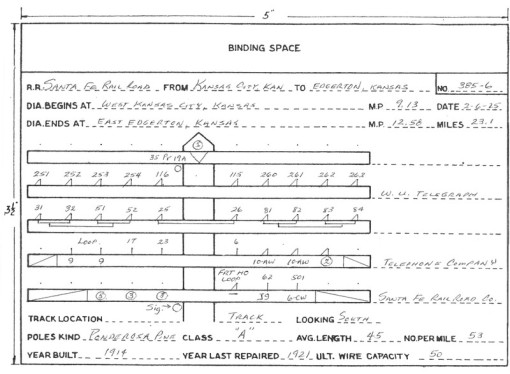 5"
BINDING SPACE
R.R. SANTA FE RAIL ROAD FROM KANSAS CITY, KAN TO EDGERTON, KANSAS NO. 385-6
DIA. BEGINS AT WEST KANSAS CITY, KANSAS M.P. 9.13 DATE 2-6-25
DIA. ENDS AT EAST EDGERTON, KANSAS M.P. 12.56 MILES 23.1
3½"
3
35 Pr 19A
251 252 253 254 116 115 260 261 262 263
W. U. TELEGRAPH
31 32 51 52 25 26 81 82 83 84
LOOP 17 23 6
9 9 10-AW 10-AW 2
TELEPHONE COMPANY
FRT HC
LOOP 62 501
39 6-CW
SANTA FE RAIL ROAD CO.
Sig.
TRACK LOCATION TRACK LOOKING SOUTH
POLES KIND PONDEROSA PINE CLASS "A" AVG. LENGTH 45 NO. PER MILE 53
YEAR BUILT 1914 YEAR LAST REPAIRED 1921 ULT. WIRE CAPACITY 50